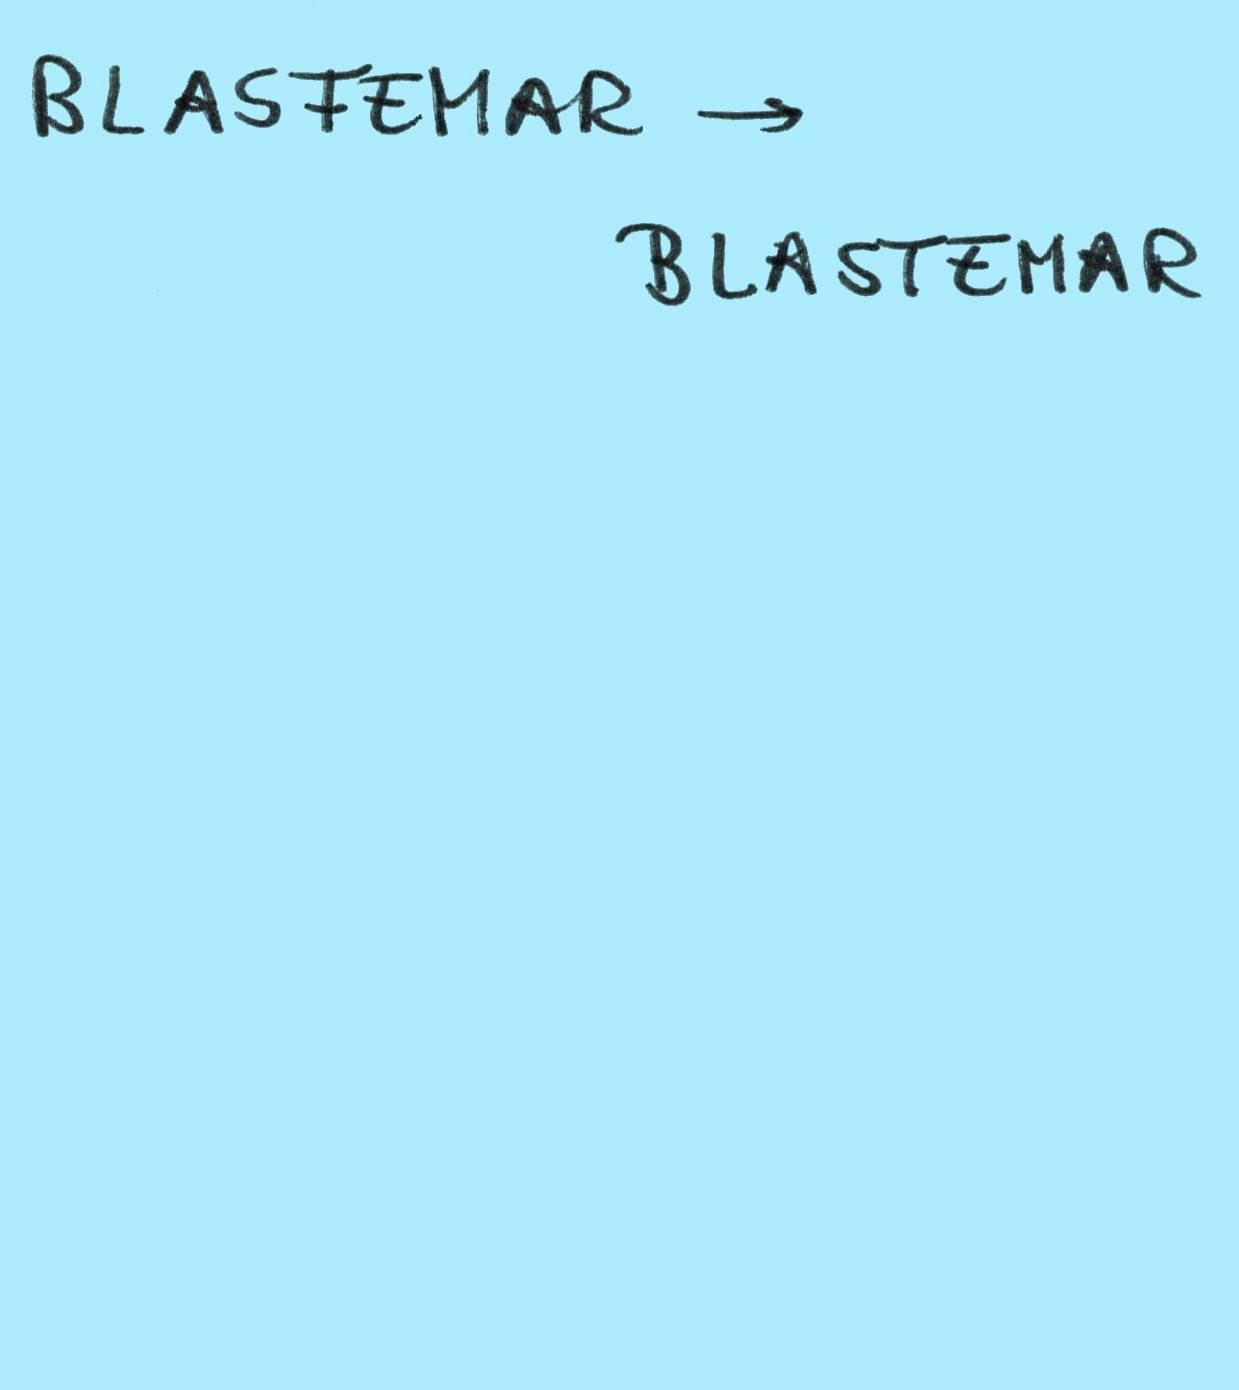 BLASTEMAR →
BLASTEMAR